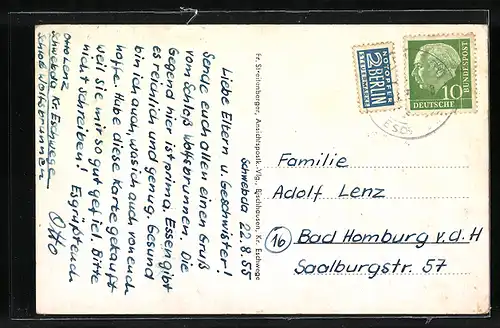 Schwebda 22.8.55
Liebe Eltern u. Geschwister!
Sende euch allen einen Gruß
vom Schloß Wolfsbrunnen. Die
Gegend hier ist prima. Essen gibt
es reichlich und genug. Gesund
bin ich auch, was ich auch von euch
hoffe. Habe diese Karte gekauft
weil sie mir so gut gefel. Bitte
nicht schreiben! Es grüßt euch
Otto
Otto Lenz
Schwebda Kr. Eschwege
Schloß Wolfsbrunnen
Fr. Streitenberger, Ansichtspostk.-Vlg., Bischhausen, Kr. Eschwege
NOTOPFER
2 BERLIN
STEUERMARKE
DEUTSCHE
BUNDESPOST
10
ESCH
Familie
Adolf Lenz
16 Bad Homburg v.d.H
Saalburgstr. 57